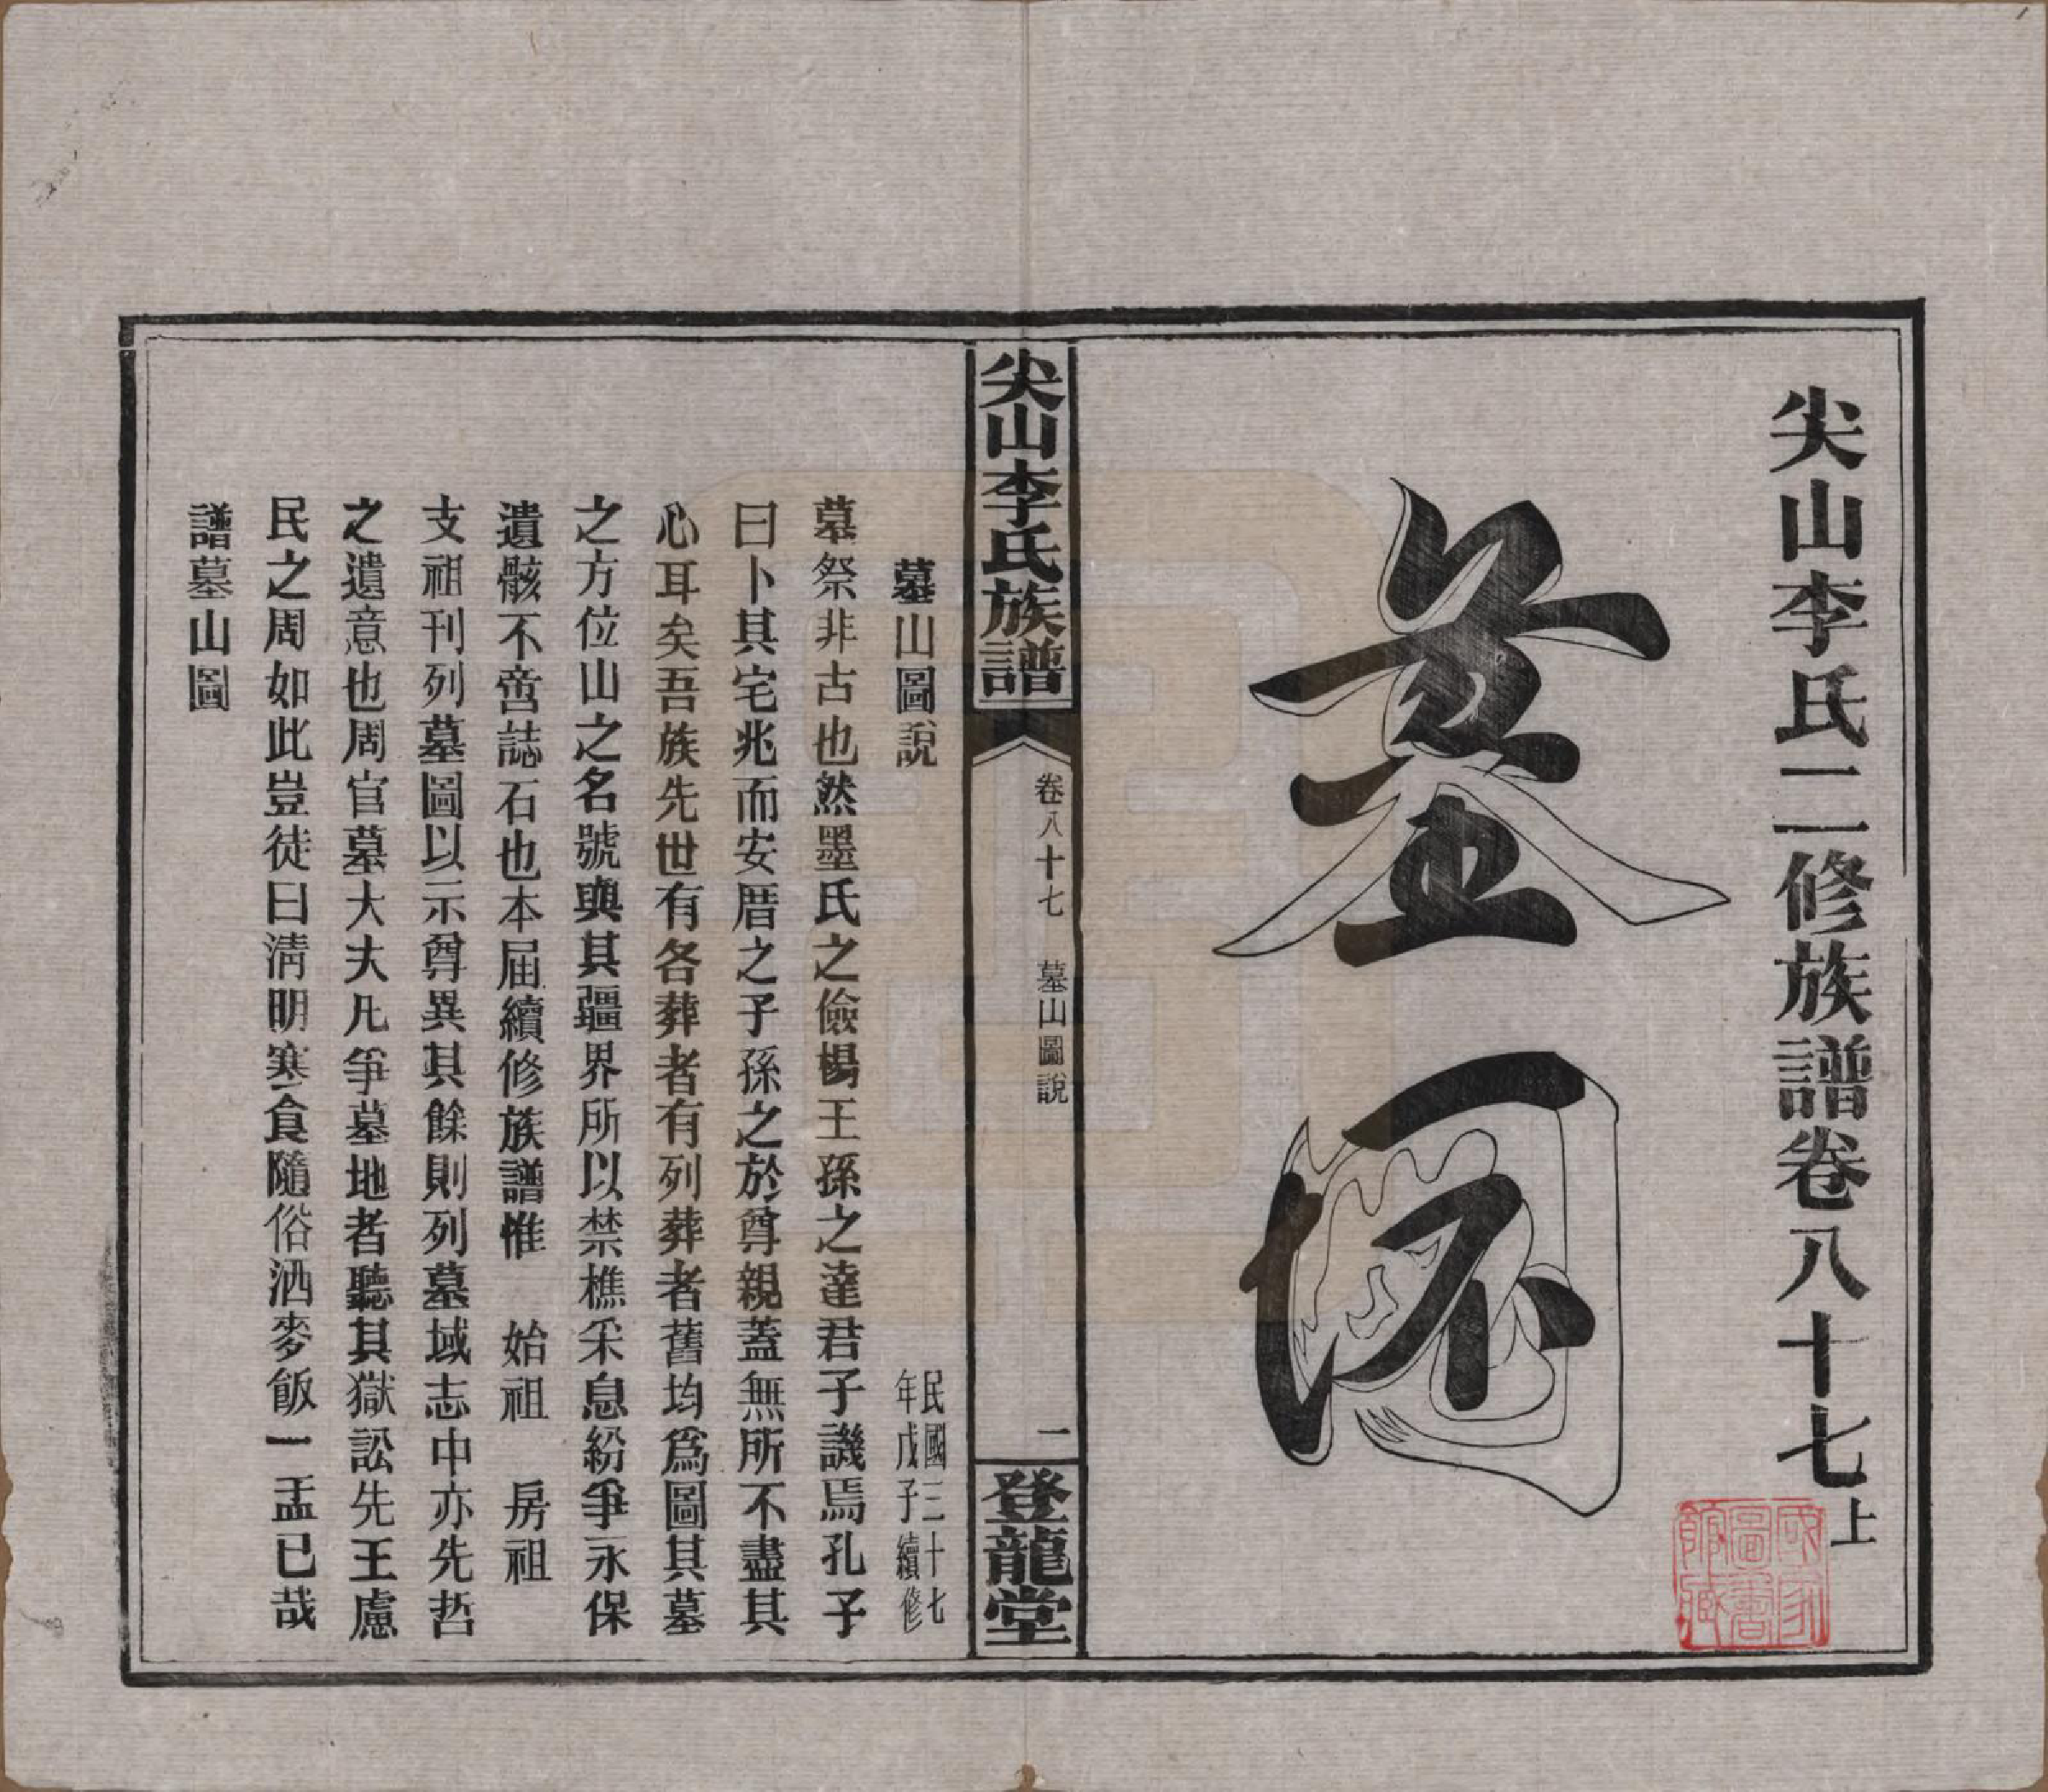 尖山李氏二修族譜卷八十七上
墓図
國家圖書館藏
尖山李氏族譜
卷八十七
墓山圖說
一
登龍堂
墓山圖說
民國三十七
年戊子續修
墓祭非古也然墨氏之儉楊王孫之達君子譏焉孔子
曰卜其宅兆而安厝之子孫之於尊親蓋無所不盡其
心耳矣吾族先世有各葬者有列葬者舊均爲圖其墓
之方位山之名號與其疆界所以禁樵采息紛爭永保
遺骸不啻誌石也本届續修族譜惟　始祖　房祖
支祖刊列墓圖以示尊異其餘則列墓域志中亦先哲
之遺意也周官墓大夫凡爭墓地者聽其獄訟先王慮
民之周如此豈徒曰淸明寒食隨俗洒麥飯一盂已哉
譜墓山圖